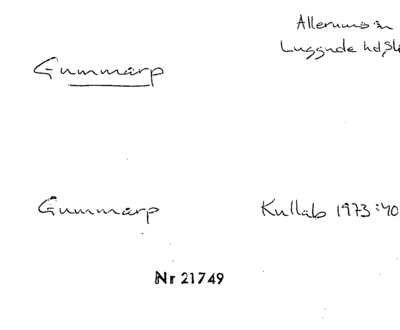 Allerums sn
Luggude hd, Sk
Gummarp
Gummarp Kullab 1973:40
Nr 21749